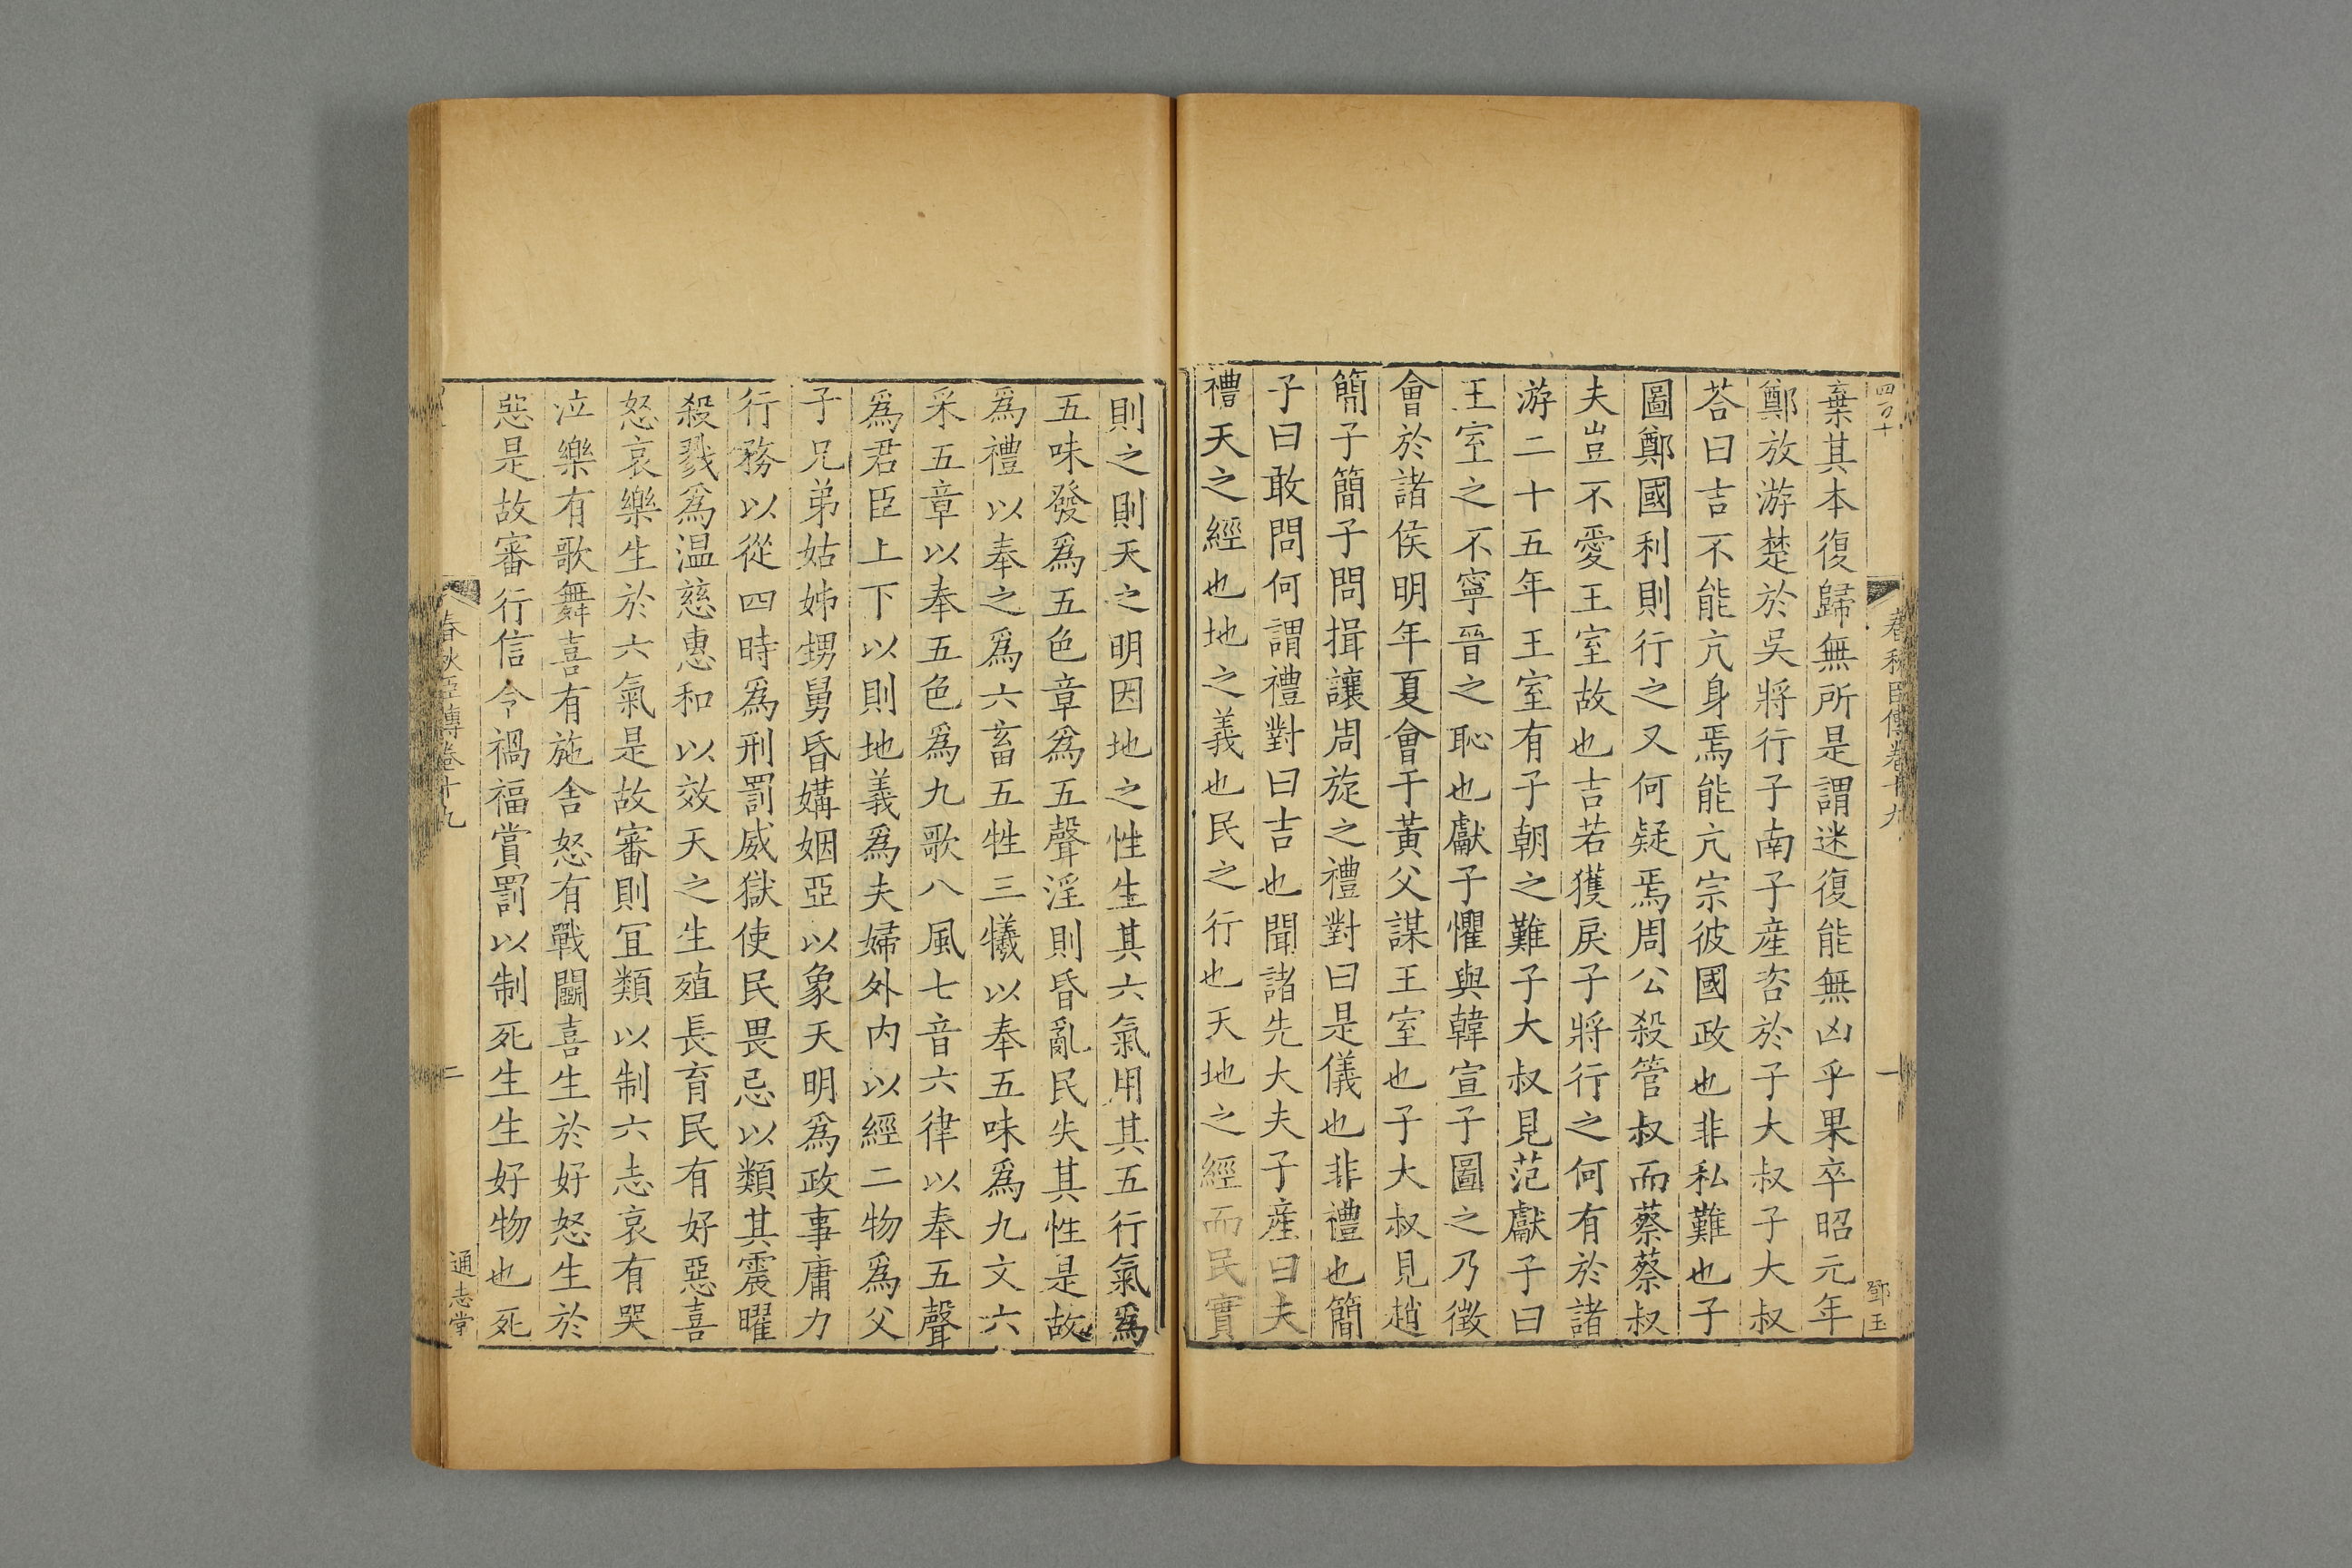 四百十
春秋臣傳卷十九
一
鄧玉
棄其本復歸無所是謂迷復能無凶乎果卒昭元年
鄭放游楚於吳將行子南子產咨於子大叔子大叔
荅曰吉不能亢身焉能亢宗彼國政也非私難也子
圖鄭國利則行之又何疑焉周公殺管叔而蔡蔡叔
夫豈不愛王室故也吉若獲戾子將行之何有於諸
游二十五年王室有子朝之難子大叔見范獻子曰
王室之不寧晉之恥也獻子懼與韓宣子圖之乃徵
會於諸侯明年夏會于黃父謀王室也子大叔見趙
簡子簡子問揖讓周旋之禮對曰是儀也非禮也簡
子曰敢問何謂禮對曰吉也聞諸先大夫子產曰夫
禮天之經也地之義也民之行也天地之經而民實
則之則天之明因地之性生其六氣用其五行氣爲
五味發爲五色章爲五聲淫則昏亂民失其性是故
爲禮以奉之爲六畜五牲三犧以奉五味爲九文六
采五章以奉五色爲九歌八風七音六律以奉五聲
爲君臣上下以則地義爲夫婦外内以經二物爲父
子兄弟姑姊甥舅昏媾姻亞以象天明爲政事庸力
行務以從四時爲刑罰威獄使民畏忌以類其震曜
殺戮爲温慈惠和以效天之生殖長育民有好惡喜
怒哀樂生於六氣是故審則宜類以制六志哀有哭
泣樂有歌舞喜有施舍怒有戰鬬喜生於好怒生於
惡是故審行信令禍福賞罰以制死生生好物也死
春秋臣傳卷十九
二
通志堂